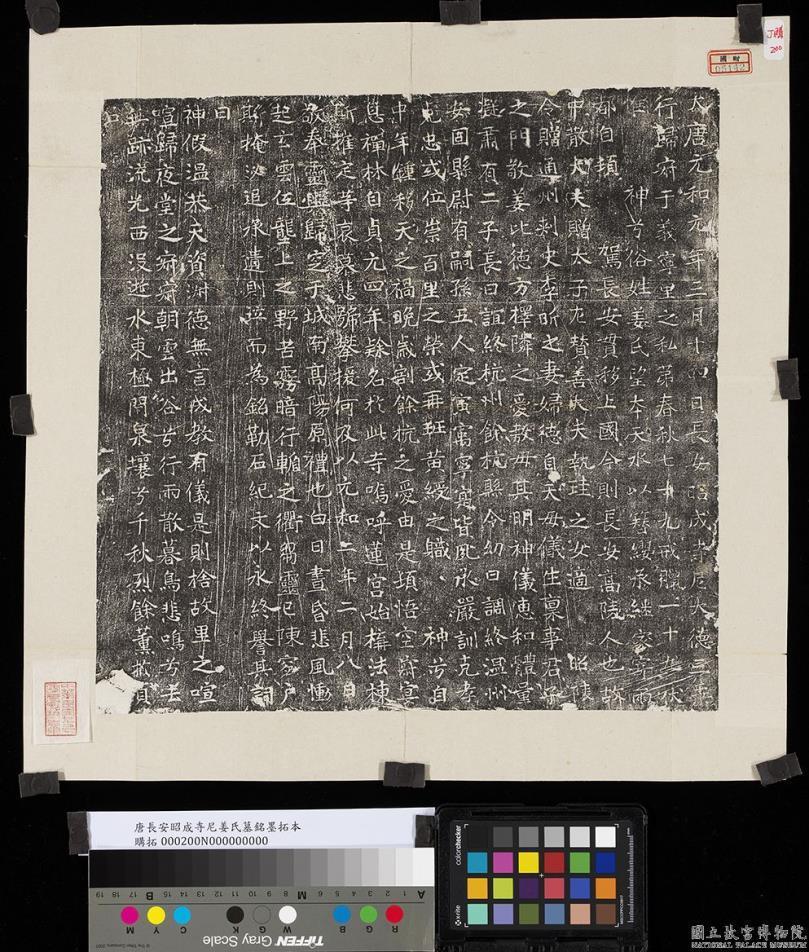 大唐元和元年三月十四日長安昭成寺尼大德三乘
行歸寂于義寧里之私第春秋七十九戒臘一十
神兮俗姓姜氏望本天水以簪纓承繼家寄兩
都自頃 駕長安貫移上國今則長安高陵人也故
中散大夫贈太子左贊善大夫執珪之女適 昭
今贈通州刺史李昕之妻婦德自天母儀生稟事君子
之門敬姜比德方擇隣之愛教毋其明神儀惠和體
肅有二子長曰誼終杭州餘杭縣令幼曰調終溫州
安固縣尉有嗣孫五人定寅寓寧寔皆夙承嚴訓克孝
克忠或位崇百里之榮或再紆黃綬之職 神兮自
中年鍾移天之禍晚歲割餘杭之愛由是頓悟空寂宴
息禪林自貞元四年隸名於此寺嗚呼蓮宮始構法棟
斯摧定等哀慕悲號攀援何及以元和二年二月八日
敬奉靈輿歸窆于城南高陽原禮也白日晝昏悲風慟
起玄雲低壟上之野苦霧暗行輀之衢甯靈已陳家
聯掩泣追承遺則琼而為銘勒石紀文以永終譽其詞
曰
神假溫恭天資淑德無言成教有儀是則捨故里之喧
喧歸夜堂之寂寂朝雲出谷兮行雨散暮鳥悲鳴兮
無跡流光西沒逝水東極閉泉壤兮千秋烈餘薰
國財
丁購
200
唐長安昭成寺尼姜氏墓銘墨拓本
購拓 000200N000000000
colorchecker
x-rite
TIFFEN Gray Scale
A 1 2 3 4 5 6 M 8 9 10 11 12 13 14 15 B 17 18 19
R G B W G K C Y M
國立故宮博物院
NATIONAL PALACE MUSEUM